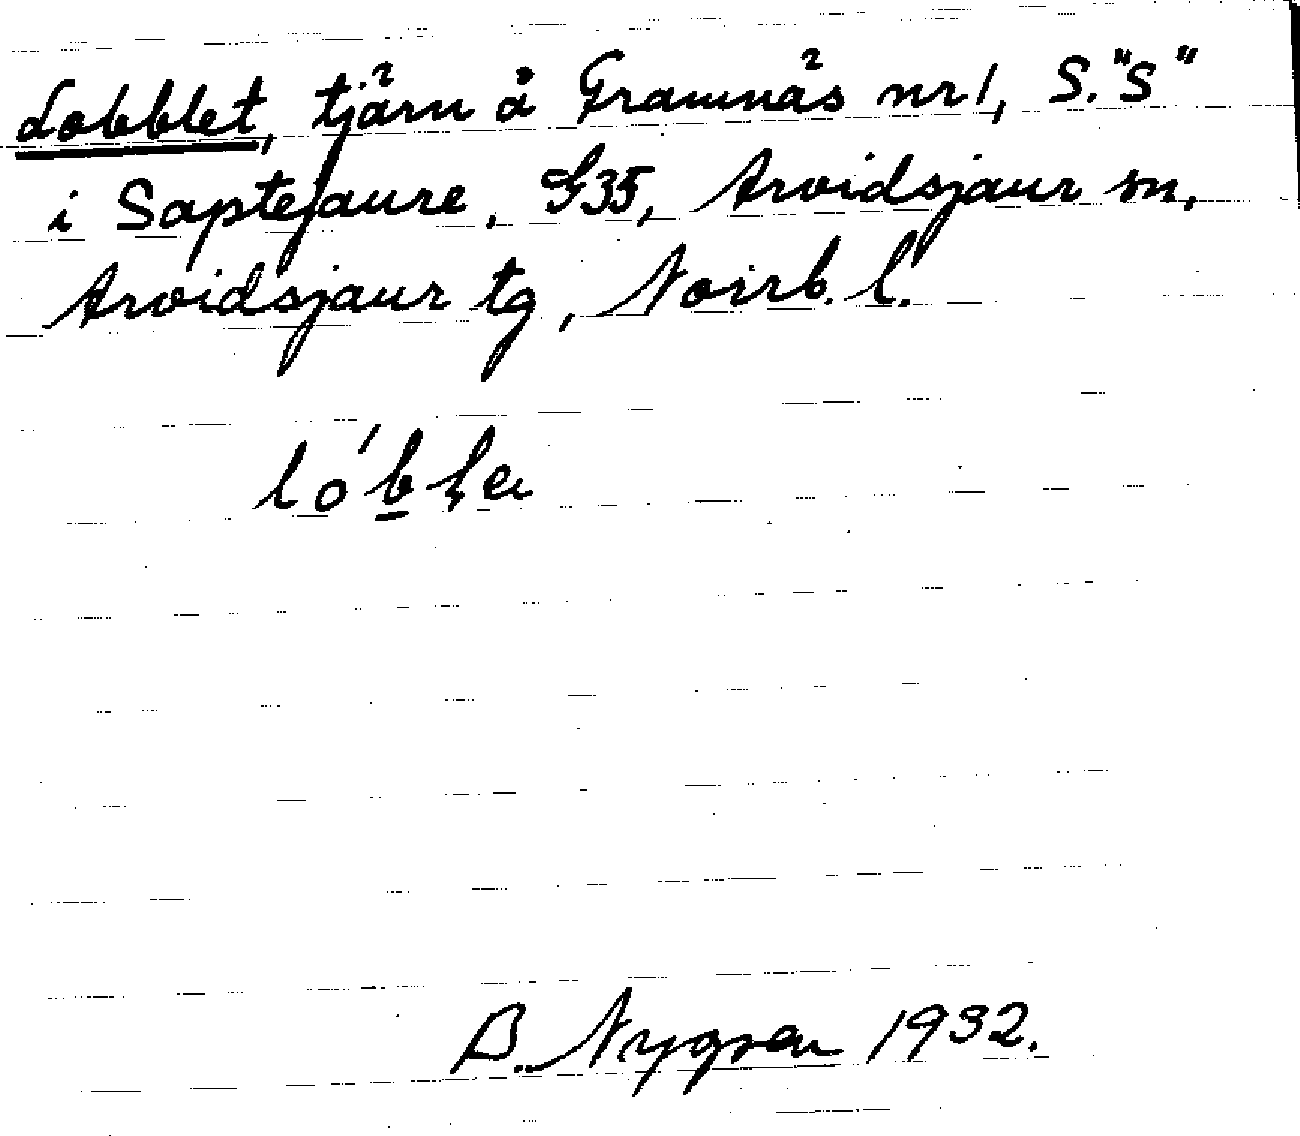 Lobblet, tjärn å Gramnäs nr 1, S. "S"
i Saptejaure, G35, Arvidsjaur sn,
Arvidsjaur tg, Norrb. l.
B. Nygren 1932.